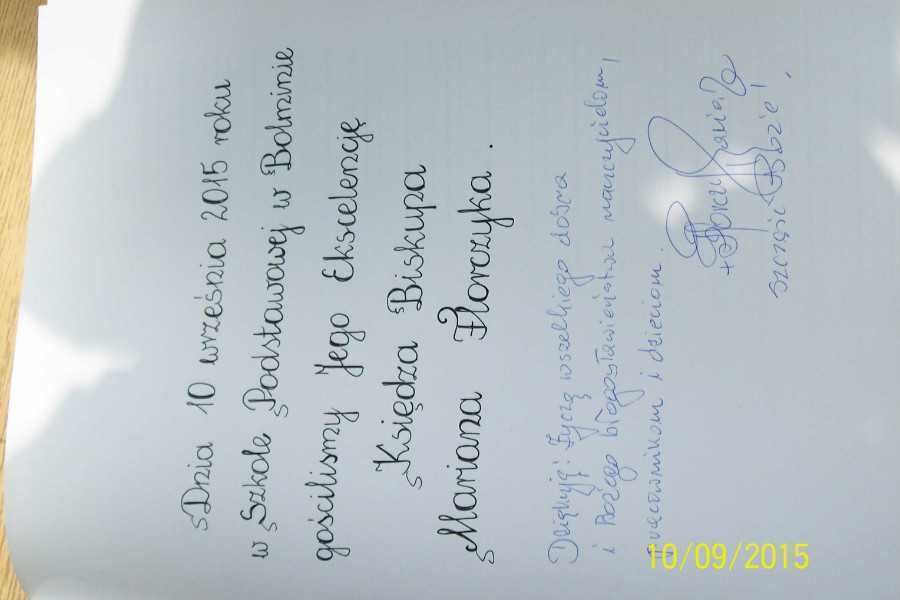 Dnia 10 września 2015 roku
w Szkole Podstawowej w Bolminie
gościliśmy Jego Ekscelencję
Księdza Biskupa
Mariana Florczyka.
Dziękuję! Życzę wszelkiego dobra
i Bożego błogosławieństwa nauczycielom,
pracownikom i dzieciom.
Szczęść Boże!
10/09/2015